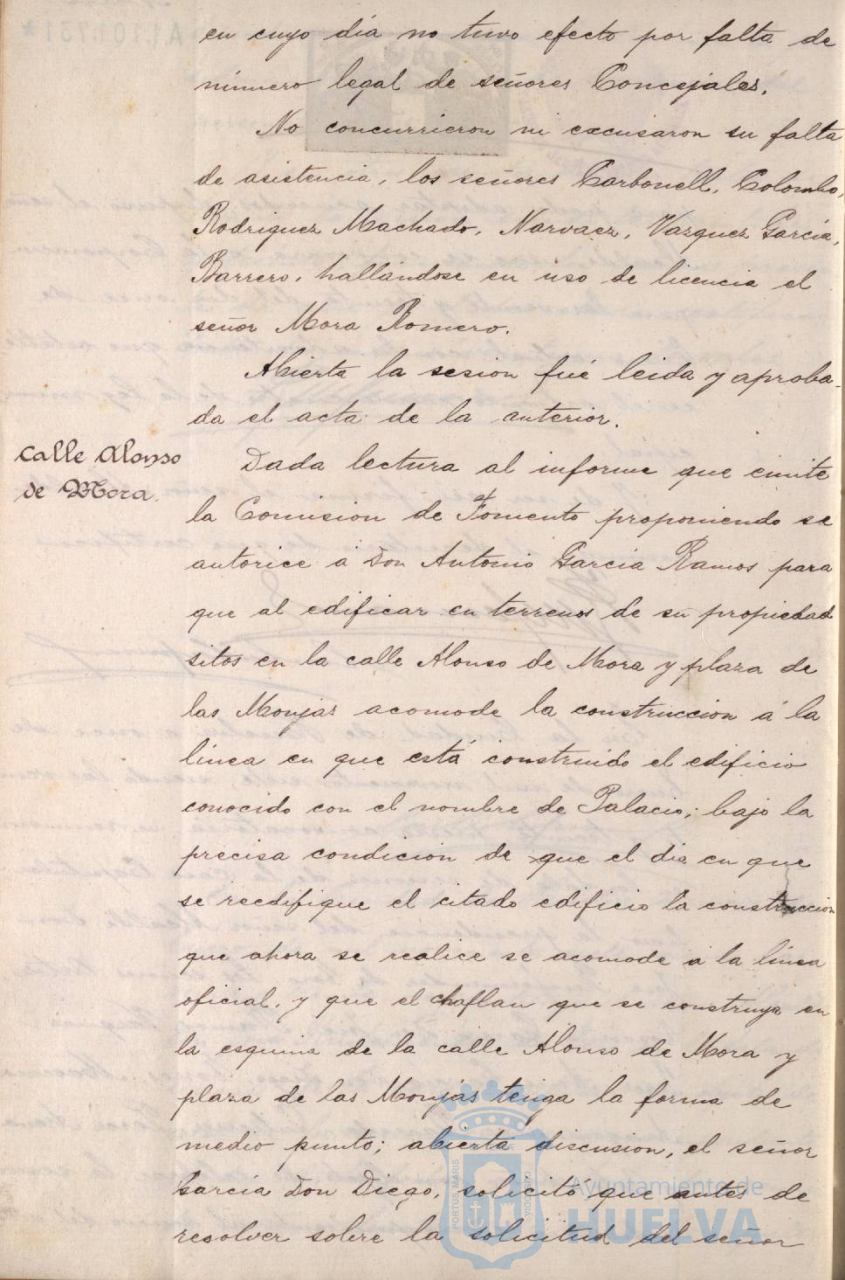 en cuyo día no tuvo efecto por falta de
número legal de señores Concejales.
No concurrieron ni excusaron su falta
de asistencia, los señores Carbonell, Colombo,
Rodriguez Machado, Narvaez, Vazquez García,
Barrero, hallándose en uso de licencia el
señor Mora Romero.
Abierta la sesion fué leida y aproba-
da el acta de la anterior.
Calle Alonso
de Mora.
Dada lectura al informe que emite
la Comision de Fomento proponiendo se
autorice á Don Antonio García Ramos para
que al edificar en terrenos de su propiedad
sitos en la calle Alonso de Mora y plaza de
las Monjas acomode la construccion á la
línea en que está construido el edificio
conocido con el nombre de Palacio; bajo la
precisa condicion de que el dia en que
se reedifique el citado edificio la construccion
que ahora se realice se acomode á la línea
oficial, y que el chaflan que se construya en
la esquina de la calle Alonso de Mora y
plaza de las Monjas tenga la forma de
medio punto; abierta discusion, el señor
García Don Diego, solicitó que antes de
resolver sobre la solicitud del señor
PORTUS MARIS
Ayuntamiento de
HUELVA